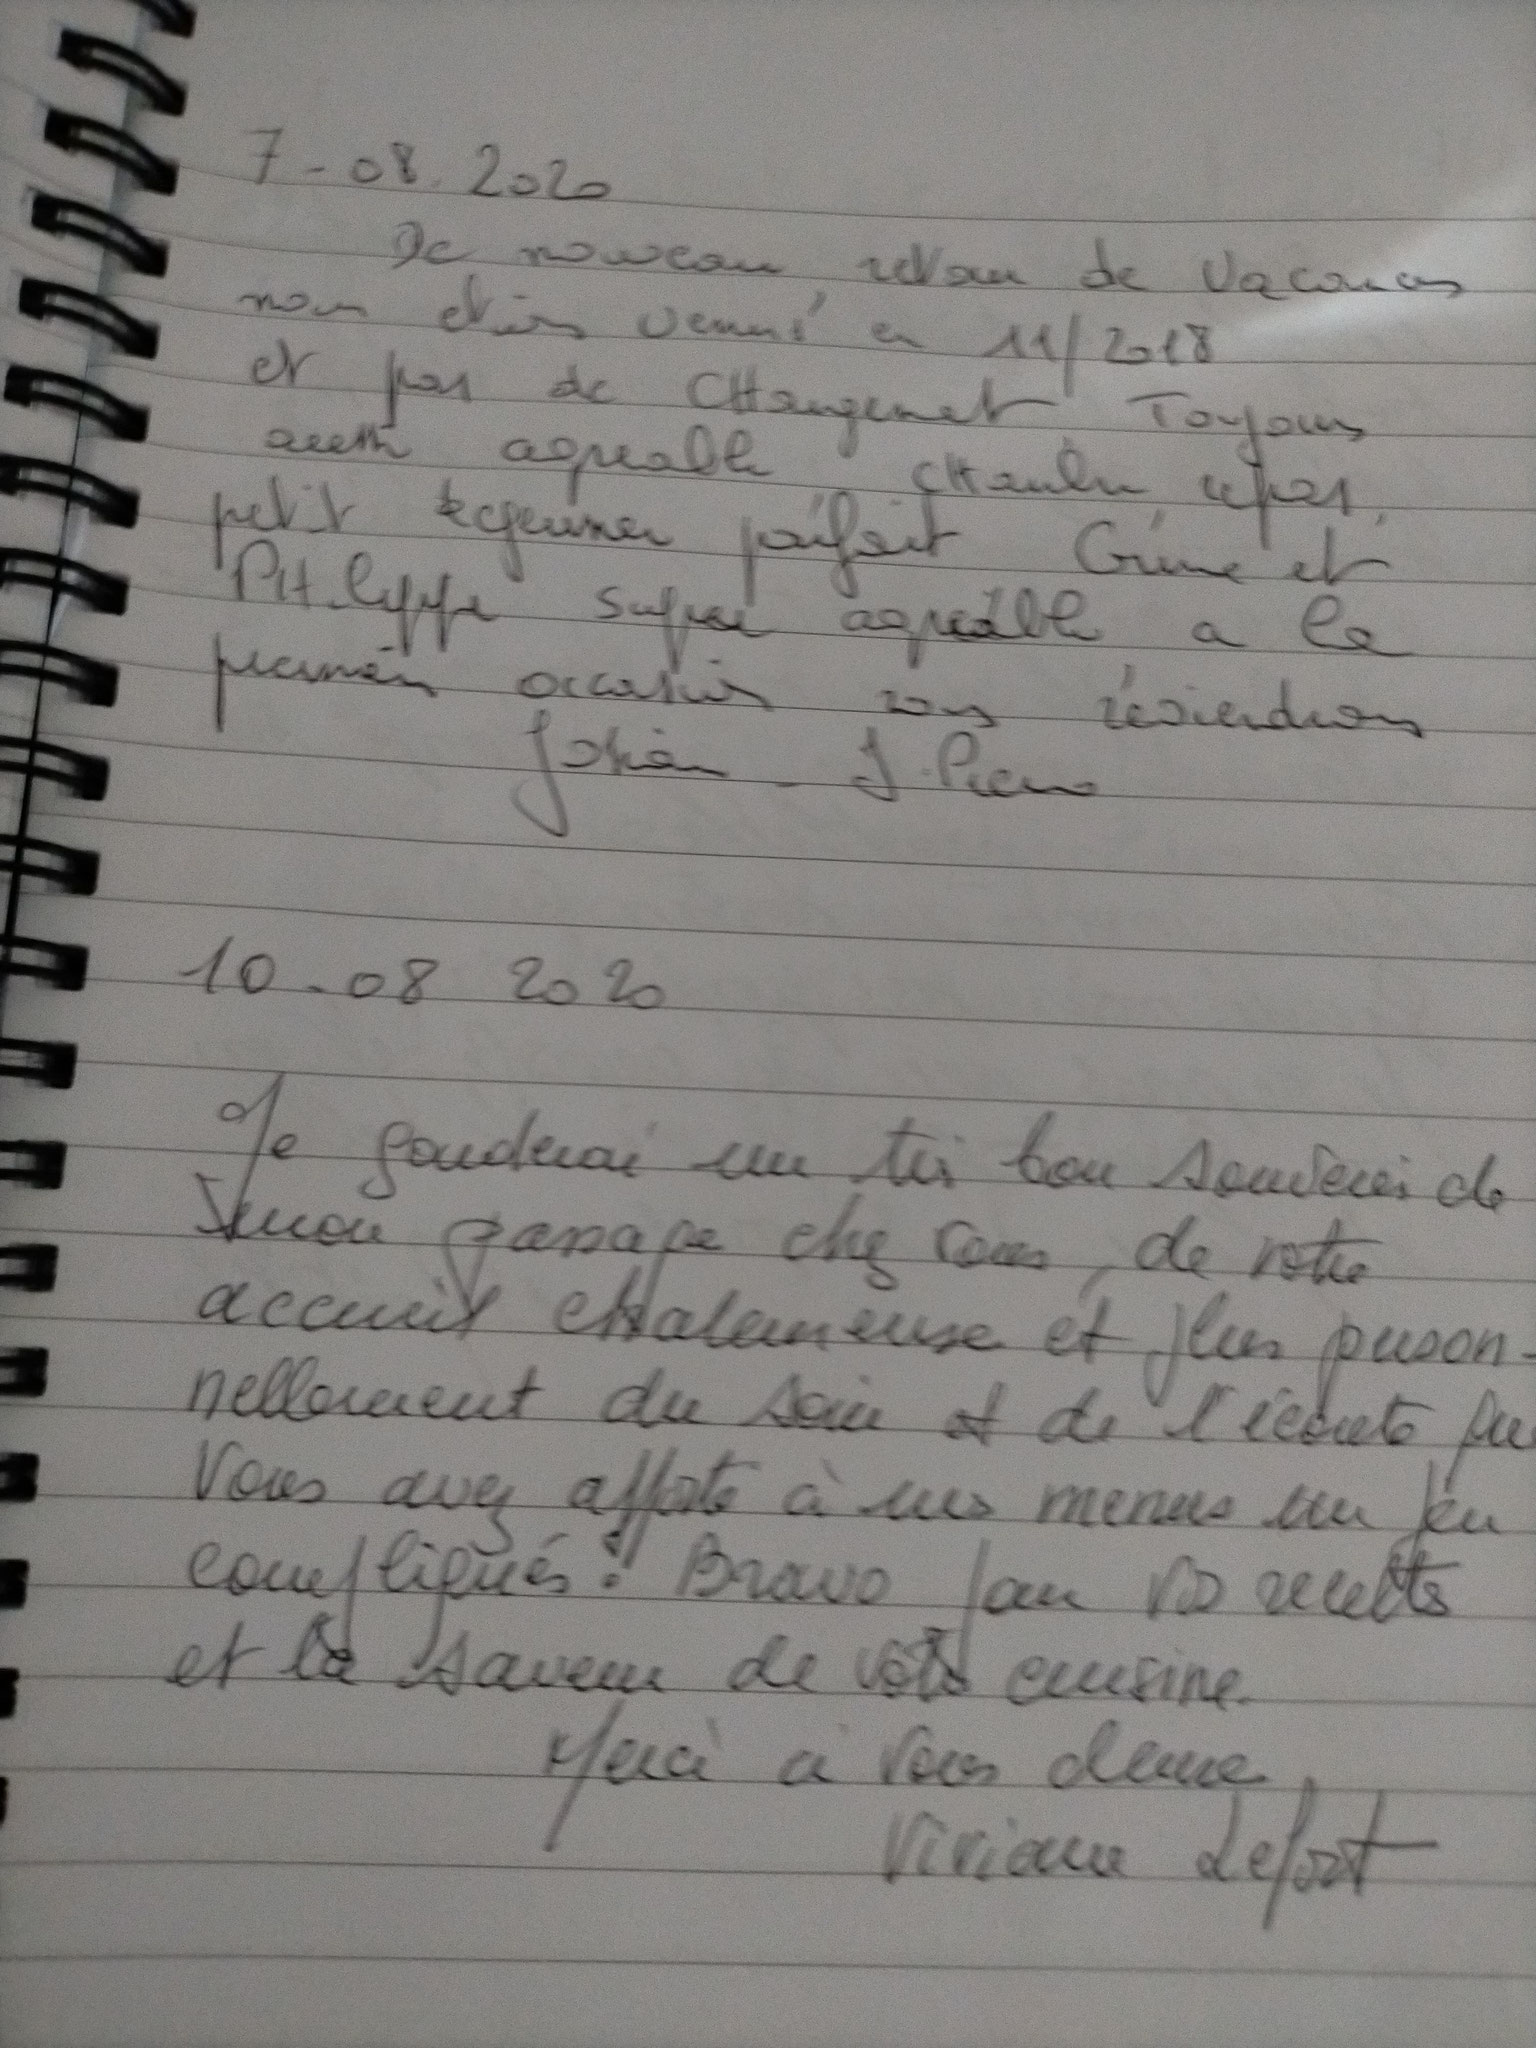 7-08.2020
De nouveau, retour de vacances
nous étions venus en 11/2018
et pas de CHangement Toujours
aussi agréable CHambre repas,
petit dejeuner parfait et
PHilippe super agréable a la
première occasion nous réviendrons
J. Pierre
10-08 2020
Je garderai un très bon souvenir de
mon passage chez vous, de votre
accueil chaleureuse et plus person-
nellement du soin et de l'écoute que
Vous avez apporté à mes menus un peu
compliqués! Bravo pour vos recettes
et la saveur de votre cuisine.
Merci à vous deux.
Viviane Lefort